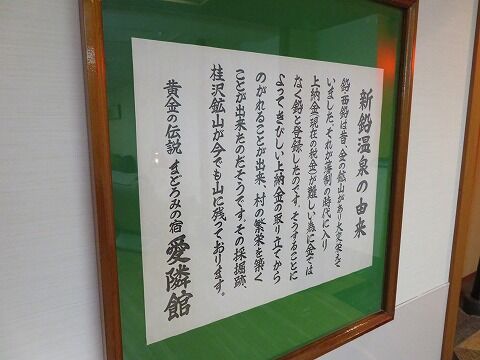 新鉛温泉の由来
鉛、西鉛は昔、金の鉱山があり大変栄えて
いました。それが藩制の時代に入り
上納金(現在の税金)が難しい為に金では
なく鉛と登録したのです。そうすることに
よってきびしい上納金の取り立てから
のがれることが出来、村の繁栄を築く
ことが出来たのだそうです。その採掘跡、
桂沢鉱山が今でも山に残っております。
黄金の伝説 まどろみの宿 愛隣館